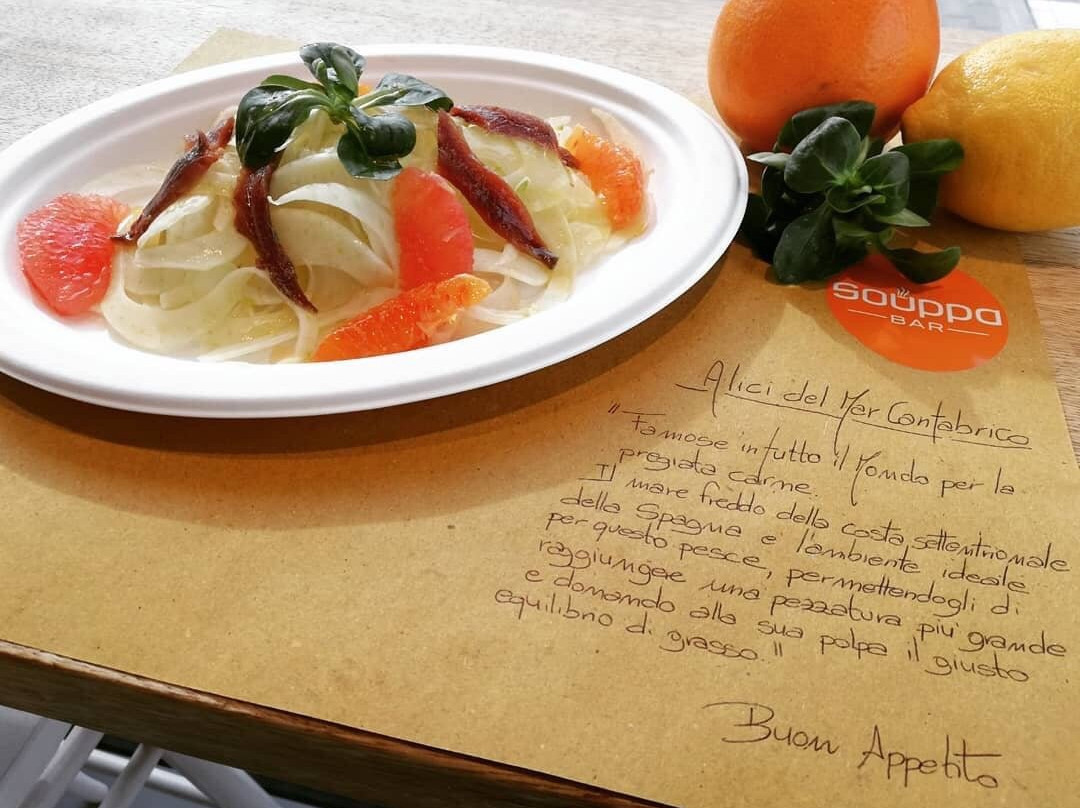 soüppa
BAR
Alici del Mar Cantabrico
"Famose in tutto il Mondo per la
pregiata carne.
Il mare freddo della costa settentrionale
della Spagna e' l'ambiente ideale
per questo pesce, permettendogli di
raggiungere una pezzatura più grande
e donando alla sua polpa il giusto
equilibrio di grasso."
Buon Appetito